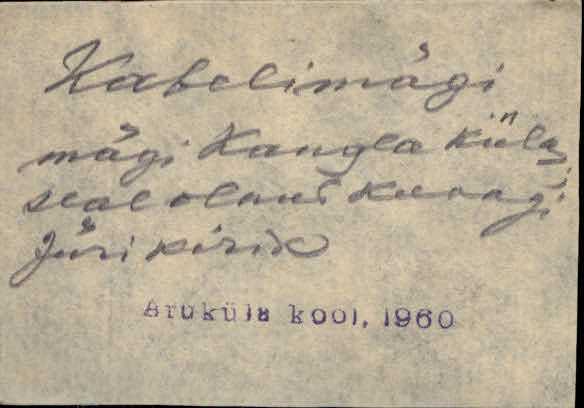 Kabelimägi
mägi Kangla küla,
seal olnud kunagi
Jüri kirik
Aruküla kool, 1960